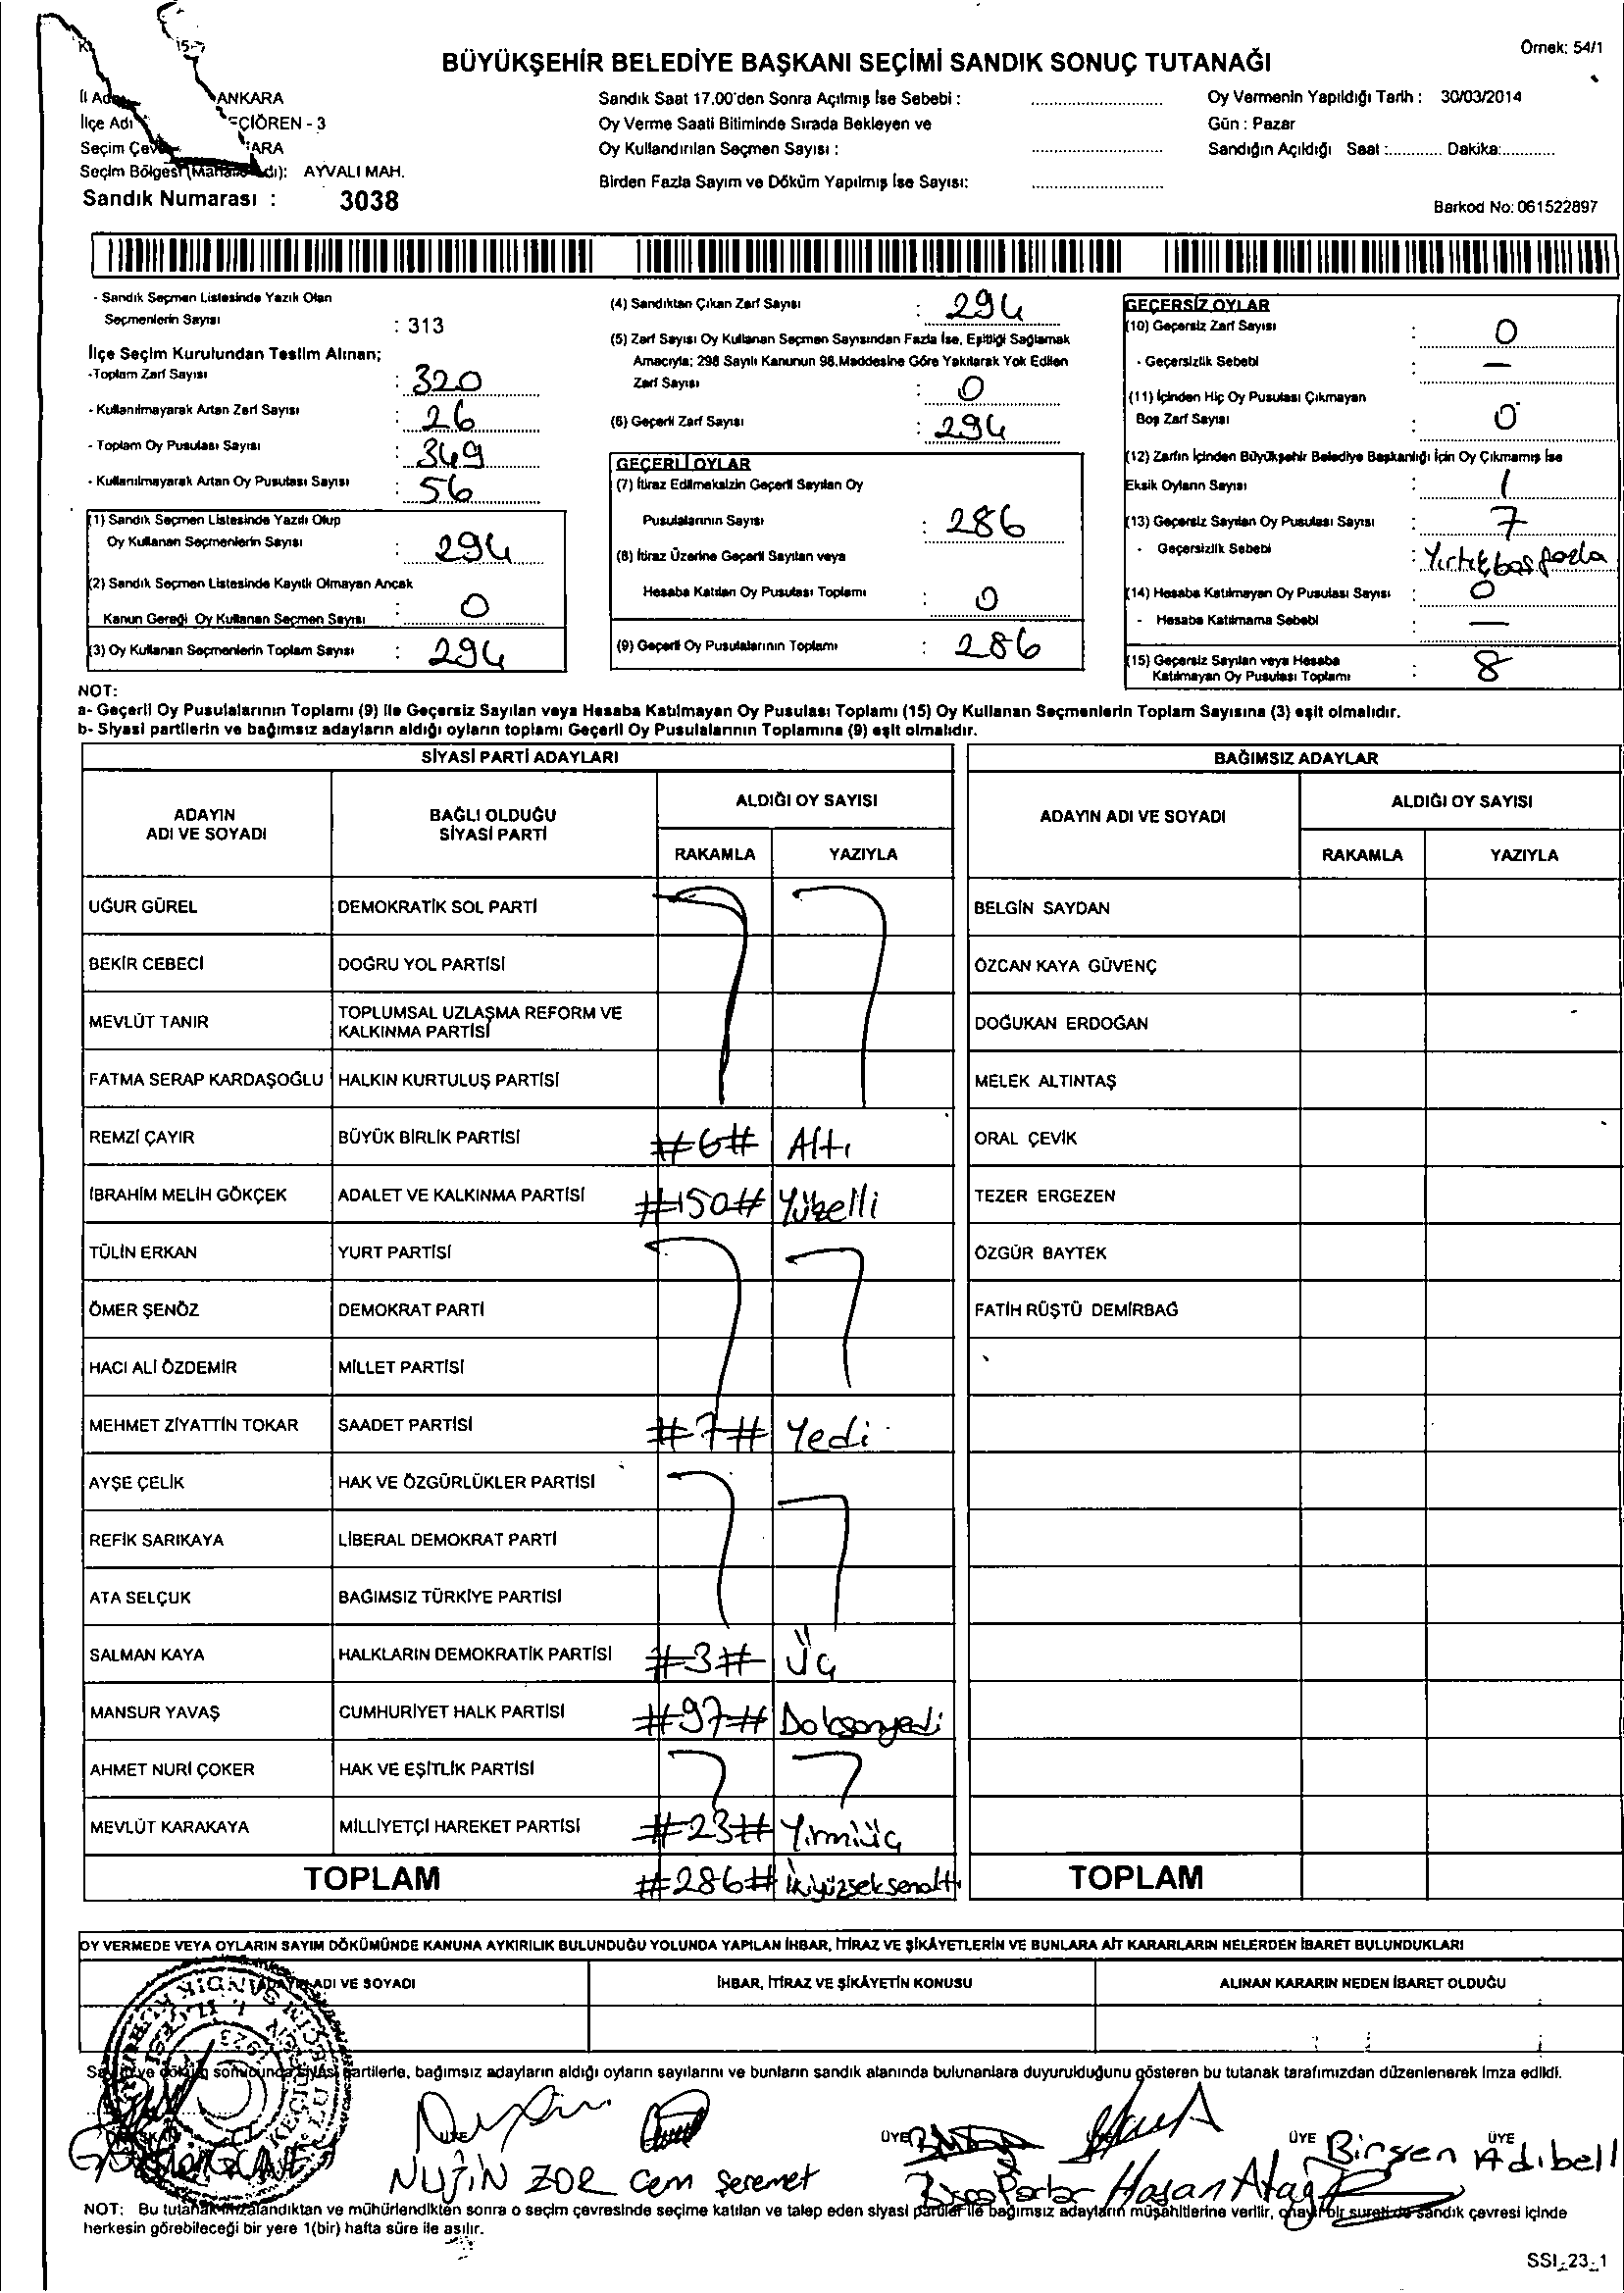 Örnek: 54/1
BÜYÜKŞEHİR BELEDİYE BAŞKANI SEÇİMİ SANDIK SONUÇ TUTANAĞI
ANKARA
İlçe Adı ÇİÖREN - 3
Seçim Çev ARA
Seçim Bölgesi AYVALI MAH.
Sandık Numarası : 3038
Sandık Saat 17.00'den Sonra Açılmış İse Sebebi :
Oy Verme Saati Bitiminde Sırada Bekleyen ve
Oy Kullandırılan Seçmen Sayısı :
Birden Fazla Sayım ve Döküm Yapılmış İse Sayısı:
Oy Vermenin Yapıldığı Tarih : 30/03/2014
Gün : Pazar
Sandığın Açıldığı Saat :............ Dakika:............
Barkod No: 061522897
- Sandık Seçmen Listesinde Yazılı Olan
Seçmenlerin Sayısı : 313
İlçe Seçim Kurulundan Teslim Alınan;
-Toplam Zarf Sayısı : 320
- Kullanılmayarak Artan Zarf Sayısı : 26
- Toplam Oy Pusulası Sayısı : 349
- Kullanılmayarak Artan Oy Pusulası Sayısı : 56
(1) Sandık Seçmen Listesinde Yazılı Olup
Oy Kullanan Seçmenlerin Sayısı : 294
(2) Sandık Seçmen Listesinde Kayıtlı Olmayan Ancak
Kanun Gereği Oy Kullanan Seçmen Sayısı : 0
(3) Oy Kullanan Seçmenlerin Toplam Sayısı : 294
(4) Sandıktan Çıkan Zarf Sayısı : 294
(5) Zarf Sayısı Oy Kullanan Seçmen Sayısından Fazla İse, Eşitliği Sağlamak
Amacıyla; 298 Sayılı Kanunun 98.Maddesine Göre Yakılarak Yok Edilen
Zarf Sayısı : 0
(6) Geçerli Zarf Sayısı : 294
GEÇERLİ OYLAR
(7) İtiraz Edilmeksizin Geçerli Sayılan Oy
Pusulalarının Sayısı : 286
(8) İtiraz Üzerine Geçerli Sayılan veya
Hesaba Katılan Oy Pusulası Toplamı : 0
(9) Geçerli Oy Pusulalarının Toplamı : 286
GEÇERSİZ OYLAR
(10) Geçersiz Zarf Sayısı : 0
- Geçersizlik Sebebi : —
(11) İçinden Hiç Oy Pusulası Çıkmayan
Boş Zarf Sayısı : 0
(12) Zarfın İçinden Büyükşehir Belediye Başkanlığı İçin Oy Çıkmamış İse
Eksik Oyların Sayısı : 1
(13) Geçersiz Sayılan Oy Pusulası Sayısı : 7
- Geçersizlik Sebebi : Yırtık, boş fazla
(14) Hesaba Katılmayan Oy Pusulası Sayısı : 0
- Hesaba Katılmama Sebebi : —
(15) Geçersiz Sayılan veya Hesaba
Katılmayan Oy Pusulası Toplamı : 8
NOT:
a- Geçerli Oy Pusulalarının Toplamı (9) ile Geçersiz Sayılan veya Hesaba Katılmayan Oy Pusulası Toplamı (15) Oy Kullanan Seçmenlerin Toplam Sayısına (3) eşit olmalıdır.
b- Siyasi partilerin ve bağımsız adayların aldığı oyların toplamı Geçerli Oy Pusulalarının Toplamına (9) eşit olmalıdır.
SİYASİ PARTİ ADAYLARI
ADAYIN ADI VE SOYADI BAĞLI OLDUĞU SİYASİ PARTİ ALDIĞI OY SAYISI
RAKAMLA YAZIYLA
UĞUR GÜREL DEMOKRATİK SOL PARTİ
BEKİR CEBECİ DOĞRU YOL PARTİSİ
MEVLÜT TANIR TOPLUMSAL UZLAŞMA REFORM VE KALKINMA PARTİSİ
FATMA SERAP KARDAŞOĞLU HALKIN KURTULUŞ PARTİSİ
REMZİ ÇAYIR BÜYÜK BİRLİK PARTİSİ #6# Altı
İBRAHİM MELİH GÖKÇEK ADALET VE KALKINMA PARTİSİ #150# Yüzelli
TÜLİN ERKAN YURT PARTİSİ
ÖMER ŞENÖZ DEMOKRAT PARTİ
HACI ALİ ÖZDEMİR MİLLET PARTİSİ
MEHMET ZİYATTİN TOKAR SAADET PARTİSİ #7# Yedi
AYŞE ÇELİK HAK VE ÖZGÜRLÜKLER PARTİSİ
REFİK SARIKAYA LİBERAL DEMOKRAT PARTİ
ATA SELÇUK BAĞIMSIZ TÜRKİYE PARTİSİ
SALMAN KAYA HALKLARIN DEMOKRATİK PARTİSİ #3# Üç
MANSUR YAVAŞ CUMHURİYET HALK PARTİSİ #97# Doksanyedi
AHMET NURİ ÇOKER HAK VE EŞİTLİK PARTİSİ
MEVLÜT KARAKAYA MİLLİYETÇİ HAREKET PARTİSİ #23# Yirmiüç
TOPLAM #286# İkiyüzseksenaltı
BAĞIMSIZ ADAYLAR
ADAYIN ADI VE SOYADI ALDIĞI OY SAYISI
RAKAMLA YAZIYLA
BELGİN SAYDAN
ÖZCAN KAYA GÜVENÇ
DOĞUKAN ERDOĞAN
MELEK ALTINTAŞ
ORAL ÇEVİK
TEZER ERGEZEN
ÖZGÜR BAYTEK
FATİH RÜŞTÜ DEMİRBAĞ
TOPLAM
OY VERMEDE VEYA OYLARIN SAYIM DÖKÜMÜNDE KANUNA AYKIRILIK BULUNDUĞU YOLUNDA YAPILAN İHBAR, İTİRAZ VE ŞİKÂYETLERİN VE BUNLARA AİT KARARLARIN NELERDEN İBARET BULUNDUKLARI
ADI VE SOYADI İHBAR, İTİRAZ VE ŞİKÂYETİN KONUSU ALINAN KARARIN NEDEN İBARET OLDUĞU
sonucunda siyasi partilerle, bağımsız adayların aldığı oyların sayılarını ve bunların sandık alanında bulunanlara duyurulduğunu gösteren bu tutanak tarafımızdan düzenlenerek imza edildi.
ÜYE ÜYE ÜYE
NUJİN ZOR Cem Seremet Hasan Birsen Adıbelli
NOT: Bu tutanak imzalandıktan ve mühürlendikten sonra o seçim çevresinde seçime katılan ve talep eden siyasi partiler ile bağımsız adayların müşahitlerine verilir, onaylı bir sureti de sandık çevresi içinde
herkesin görebileceği bir yere 1(bir) hafta süre ile asılır.
SSI_23_1